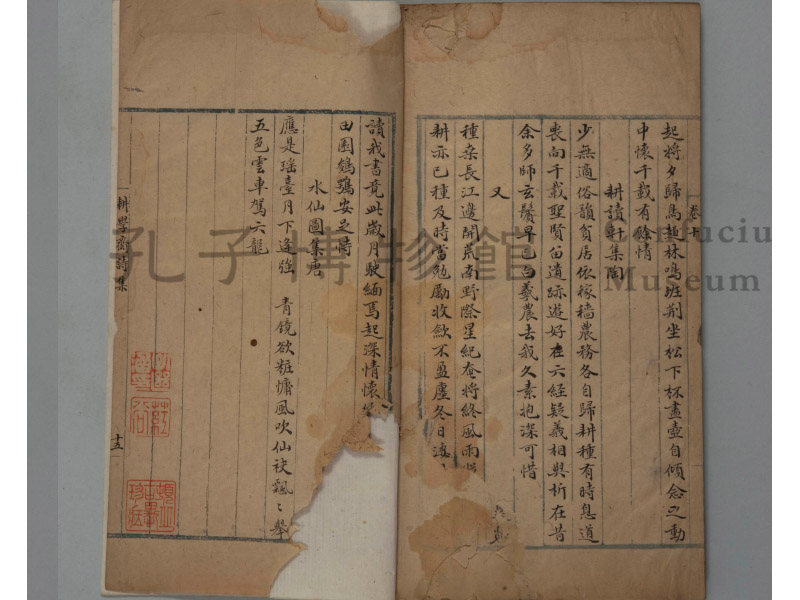 卷十
起將夕歸鳥趨林鳴班荆坐松下杯盡壺自傾念之動
中懷千載有餘情
耕讀軒集陶
少無適俗韻貧居依稼穡農務各自歸耕種有時息道
喪向千載聖賢留遺跡遊好在六經疑義相與析在昔
余多師玄鬢早已白羲農去我久素抱深可惜
又
種桑長江邊開荒南野際星紀奄將終風雨
耕亦已種及時當勉勵收斂不盈廛冬日淒
讀我書竟此歲月駛緬焉起深情懷
田園鵪鶉安之
水仙圖集唐
應是瑶臺月下逢強 青鏡欲粧慵風吹仙袂飄〻舉
五色雲車駕六龍
耕學齋詩集
十五
孔子博物館
Confuciu
Museum